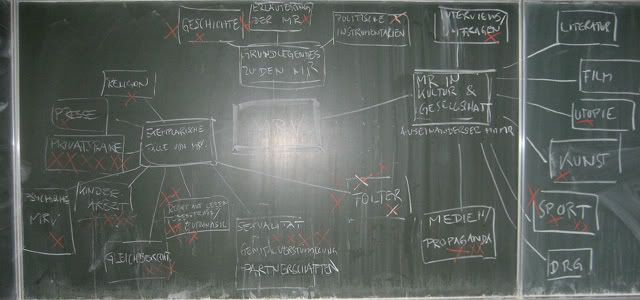 GESCHICHTE
ERLÄUTERUNG
DER MR
POLITISCHE
INSTRUMENTARIEN
INTERVIEWS/
LITERATUR
GRUNDLEGENDES
ZU DEN MR
RELIGION
MR IN
KULTUR &
GESELLSCHAFT
FILM
MRV
PRESSE
UTOPIE
EXEMPLARISCHE
FÄLLE VON MRV
PRIVATSPHÄRE
KUNST
KINDER-
ARBEIT
PSYCHISCHE
MRV
FOLTER
SPORT
SEXUALITÄT
GENITALVERSTÜMMELUNG
PARTNERSCHAFTEN
MEDIEN/
PROPAGANDA
GLEICHBERECHT.
DRG